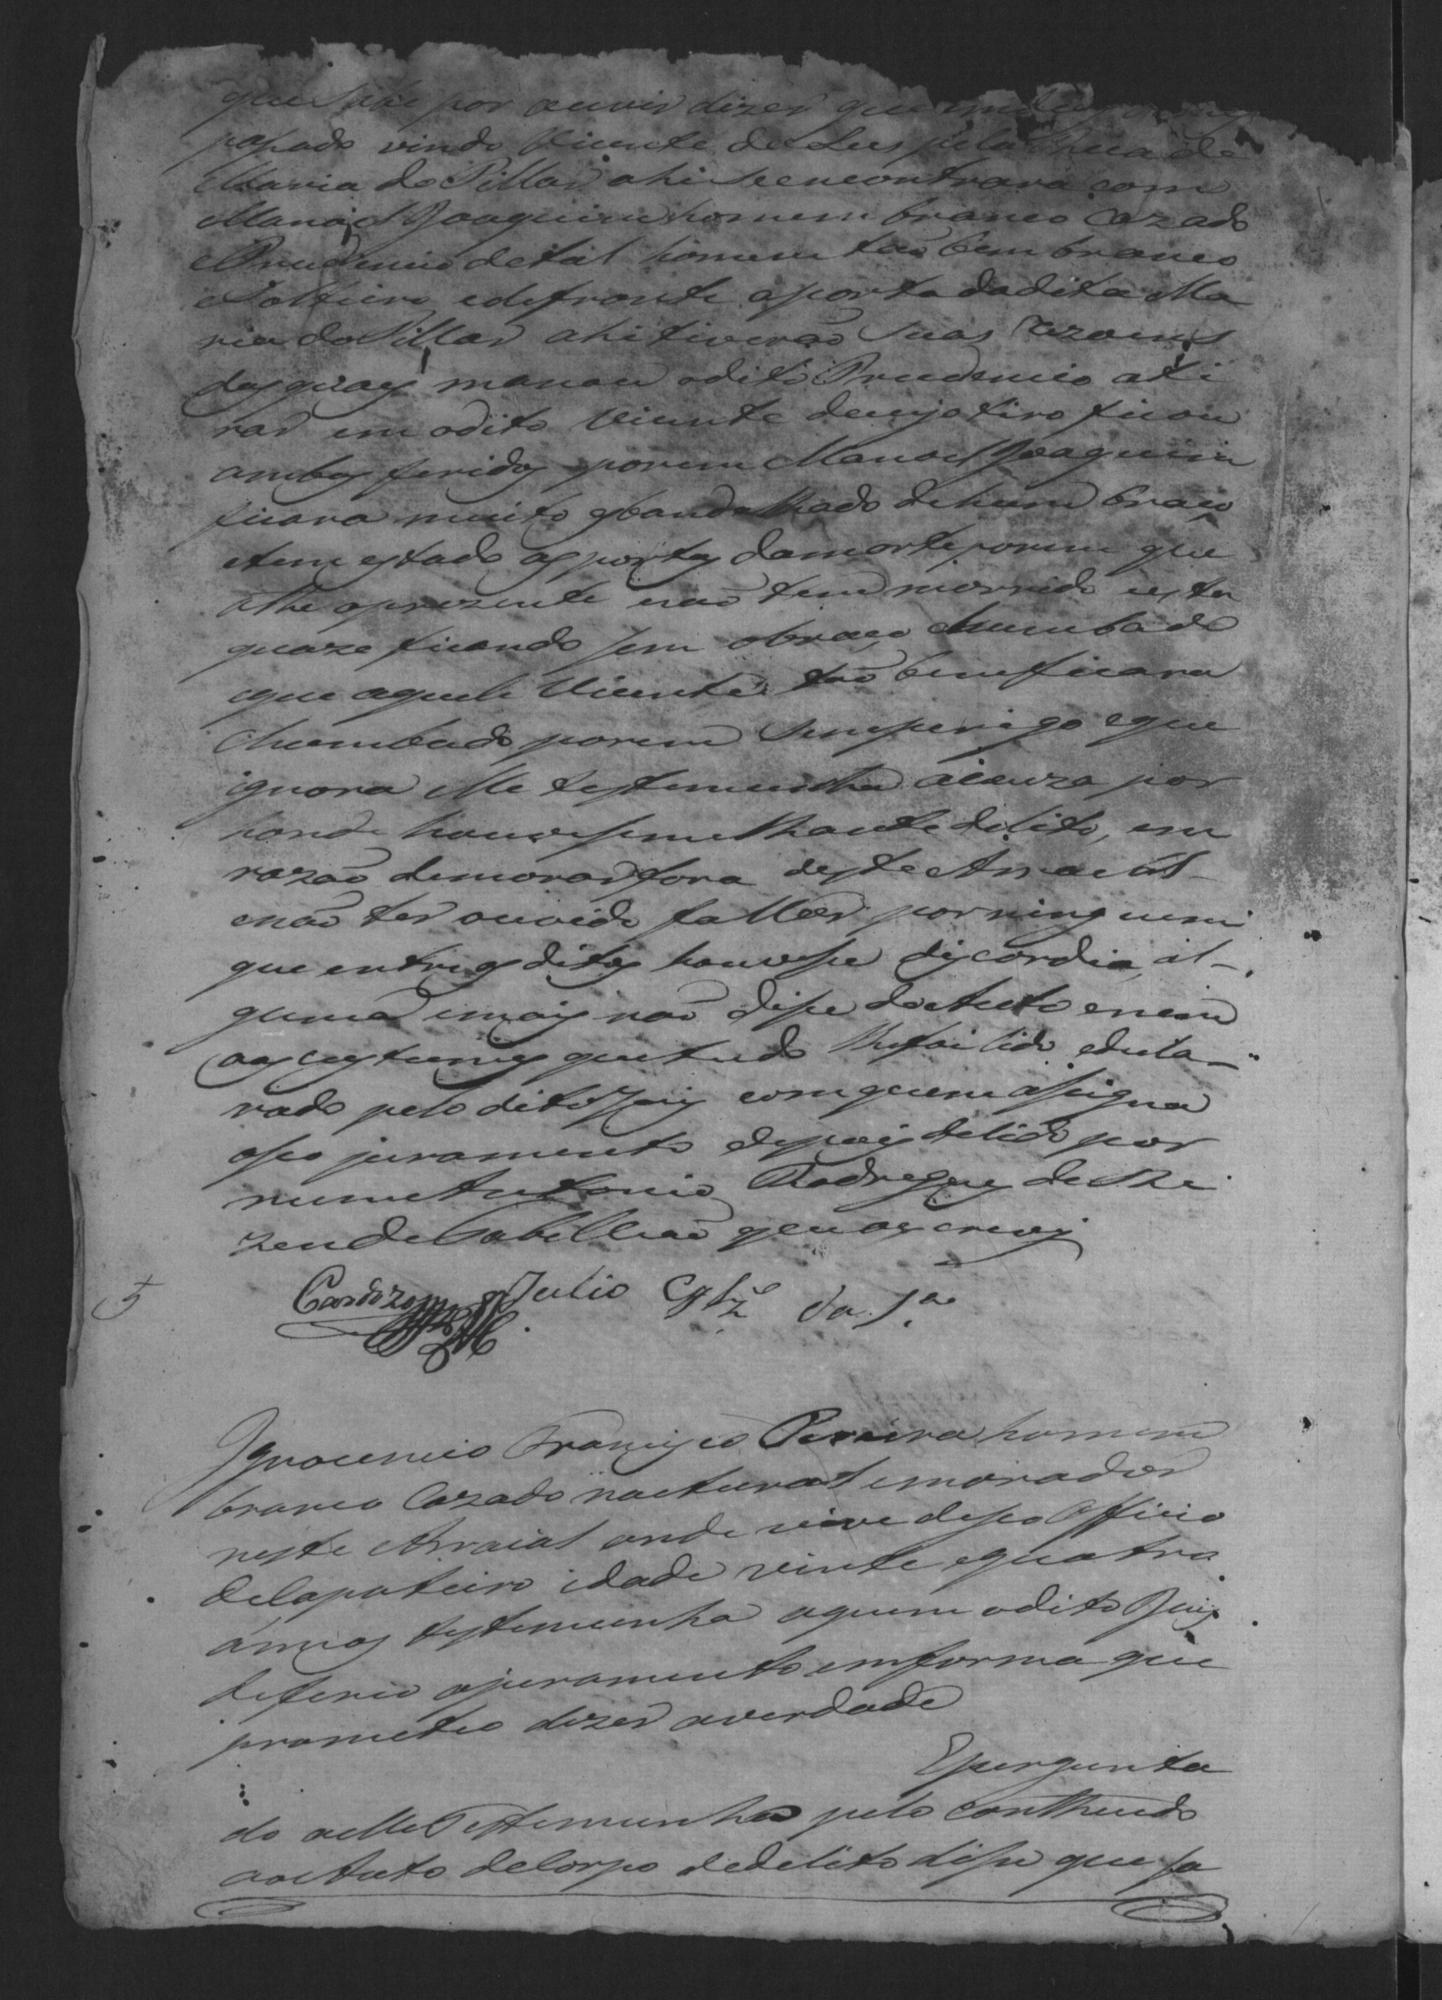 que sabe por ouvir dizer que
pasado vindo Vicente de pela Rua de
Maria do Pillar ahi se encontrara com
Manoel Joaquim homem branco cazado
e Prudencio de tal homem tão bem branco
Solteiro e defronte a porta da dita Ma
ria do Pillar ahi tiverão suas rezoens
das quais o dito Prudencio a ti
rar em o dito Vicente de cujo tiro ficou
ambos feridos porem Manoel Joaquim
ficara muito esbandalhado de hum braço
e tem estado as portas da morte porem que
athe o prezente não tem morrido e esta
quaze ficando sem o braço chumbado
que aquele Vicente tão bem ficara
chumbado porem sem perigo e que
ignora elle testemunha a cauza por
honde houve semelhante delito, em
razão de morar fora deste Arraial
e não ter ouvido fallar por ninguem
que entre os ditos houvesse discordia al-
guma e mais não disse do Auto e nem
aos custumes que tudo lhe foi lido e decla-
rado pelo dito Juiz com quem assigna
o seo juramento depois de lido por
mim Antonio Rodrigues de Re
zende Tabelliao que o escrevy
Cardozo Julio da S.ª
5
Ignocencio Francisco Pereira homem
branco cazado natural e morador
neste Arraial onde vive de seo Officio
de Sapateiro idade vinte e quatro
annos testemunha a quem o dito Juiz
deferio o juramento em forma que
prometeo dizer a verdade
E pergunta
do a elle Testemunha pelo contheudo
no Auto de Corpo de delito disse que sa